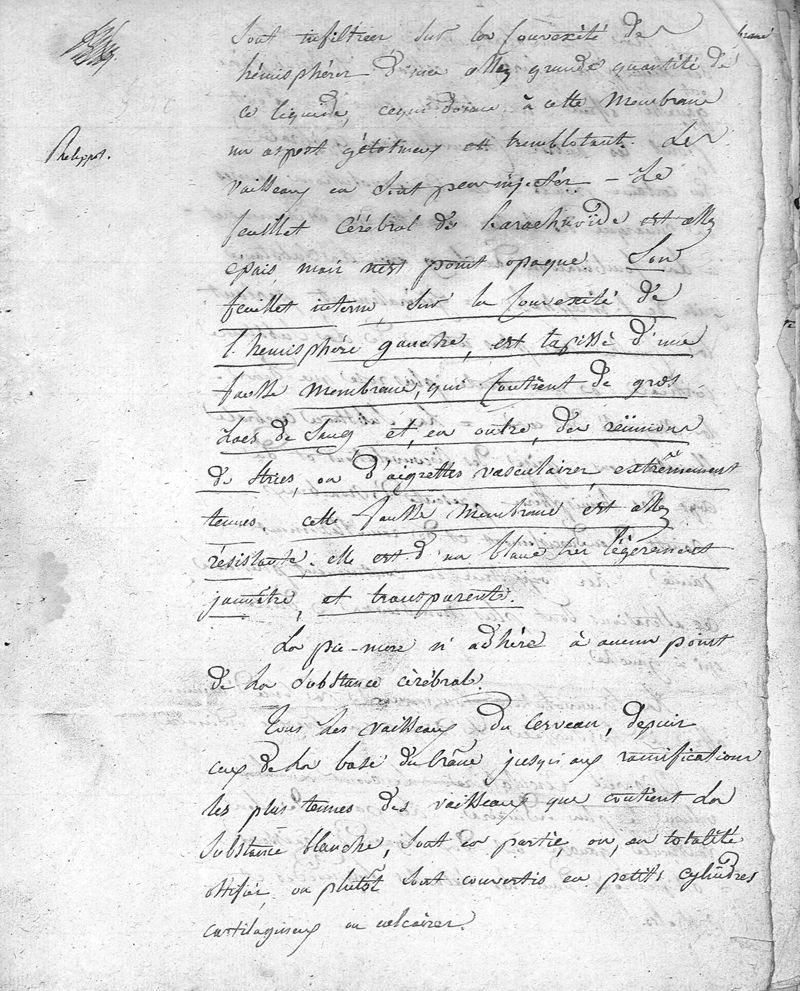 sont infiltrées sur la convexité des
hémisphères d'une assez grande quantité de
ce liquide, ce qui donne à cette membrane
un aspect gélatineux et tremblotant. Les
vaisseaux en sont peu injectés – Le
feuillet cérébral de l'arachnoïde est assez
épais, mais n'est point opaque. Son
feuillet interne, sur la convexité de
l'hémisphère gauche, est tapissé d'une
fausse membrane, qui contient de gros
lacs de sang et, en outre, des réunions
de stries, ou d'aigrettes vasculaires, extrêmement
tenues, cette fausse membrane est assez
résistante, elle est d'un blanc très légèrement
jaunâtre, et transparente.
La pie-mère n'adhère à aucun point
de la substance cérébrale.
Tous les vaisseaux du cerveau, depuis
ceux de la base du crâne jusqu'aux ramifications
les plus tenues des vaisseaux que contient la
substance blanche, sont en partie, ou, en totalité
ossifiés, ou plutôt sont convertis en petits cylindres
cartilagineux ou calcaires.
Philippot.